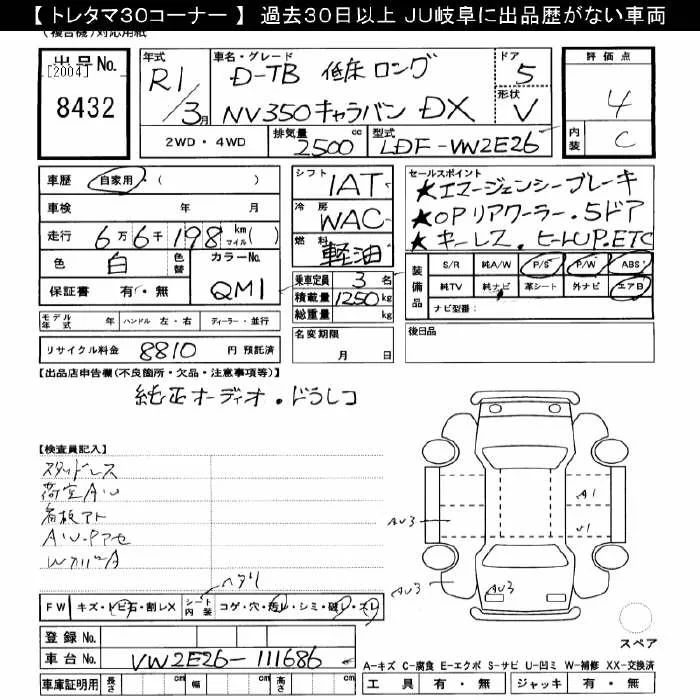 【 トレタマ30コーナー 】 過去30日以上 JU岐阜に出品歴がない車両
(複合機)対応用紙
出品No.
[2004]
8432
年式
R1/3月
車名・グレード
D-TB 低床ロング
NV350キャラバン DX
ドア
5
形状
V
評価点
4
内装
C
2WD・4WD
排気量
2500 cc
型式
LDF-VW2E26
車歴
自家用・( )
車検 年 月
走行 6万6千198 km マイル( )
色 白 色替
カラーNo.
QM1
保証書 有・無
シフト IAT
冷房 WAC
燃料 軽油
乗車定員 3 名
積載量 1250 kg
総重量 kg
セールスポイント
★エマージェンシーブレーキ
★OPリアクーラー・5ドア
★キーレス.ヒートUP.ETC
装備品
S/R 純A/W P/S P/W ABS
純TV 純ナビ 革シート 外ナビ エアB
ナビ型番:
モデル年式 年 ハンドル 左・右 ディーラー・並行
リサイクル料金 8810 円 預託済
名変期限
月 日
後日品
【出品店申告欄(不良箇所・欠品・注意事項等)】
純正オーディオ・ドラレコ
【検査員記入】
スタッドレス
荷室AU
看板アト
AU・Pアセ
A1
U1
AU3
AU3
AU3
FW キズ・トビ石・割レX
シート内装 コゲ・穴・汚レ・シミ・破レ・スレ
登録No.
車台No. VW2E26-111686
車庫証明用 長さ cm 幅 cm 高さ cm
スペア
A-キズ C-腐食 E-エクボ S-サビ U-凹ミ W-補修 XX-交換済
工具 有・無 ジャッキ 有・無